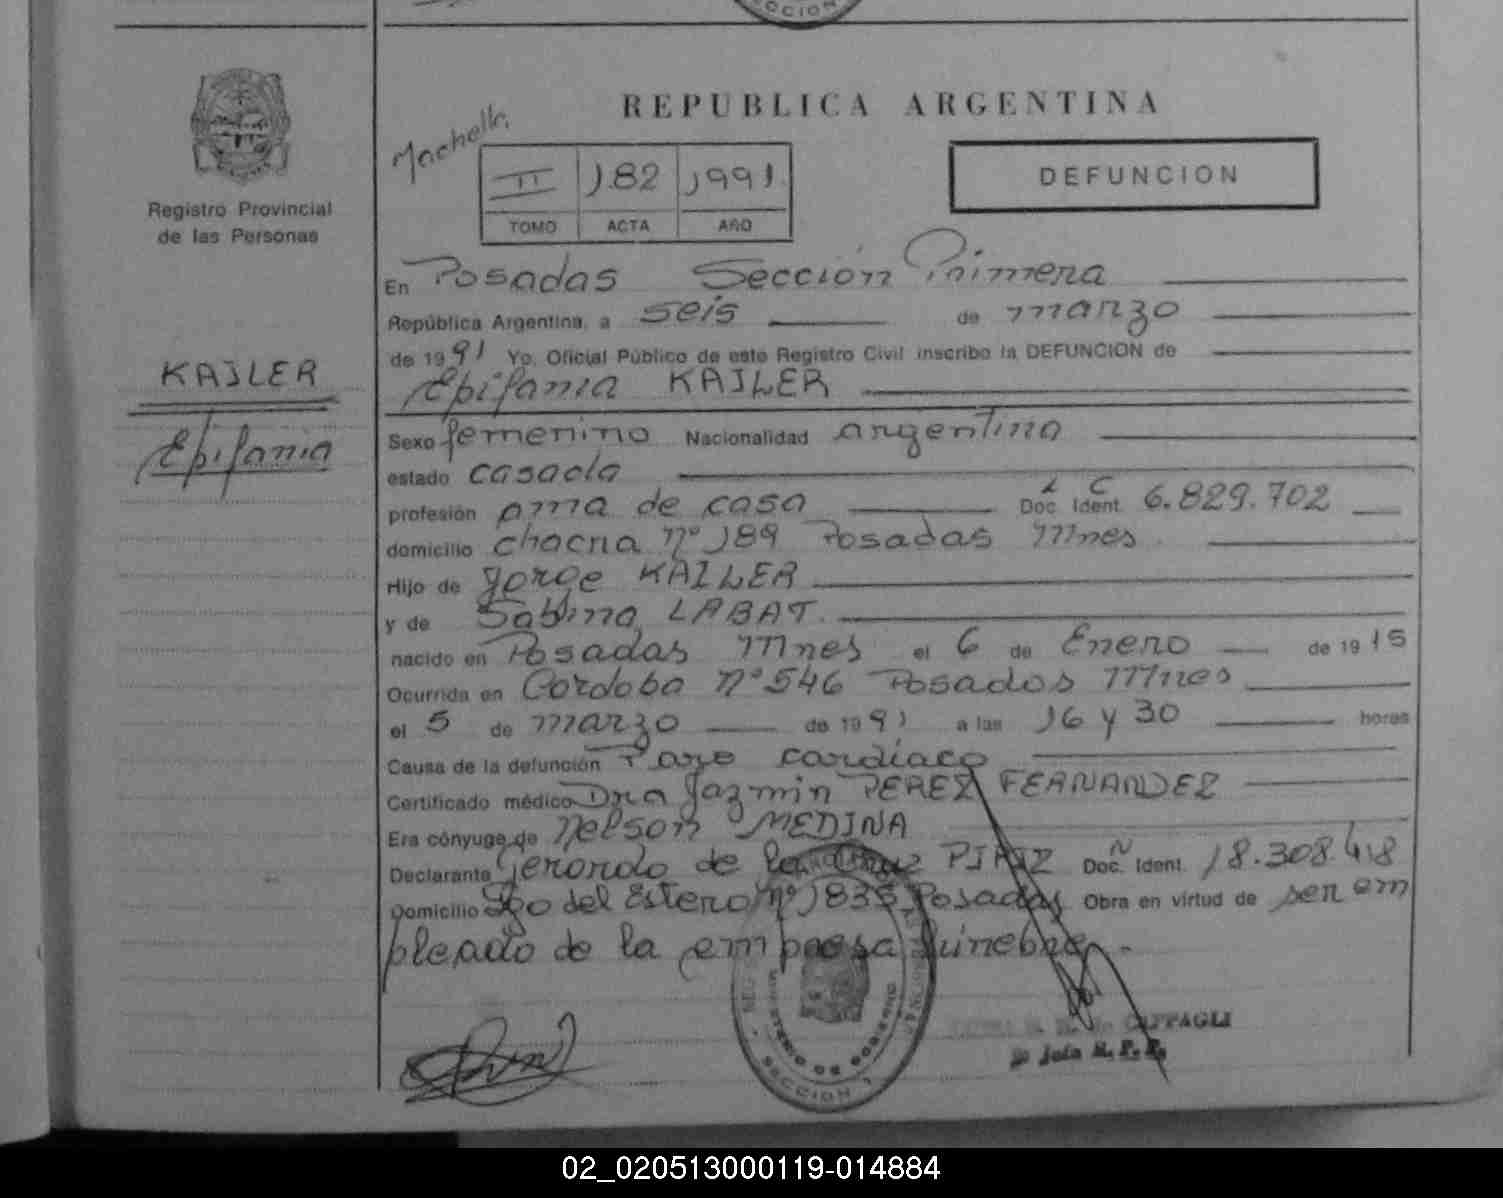 SECCION
REPUBLICA ARGENTINA
Machello
II 182 1991
TOMO ACTA AÑO
DEFUNCION
Registro Provincial
de las Personas
En Posadas Sección Primera
República Argentina, a seis de marzo
de 1991 Yo, Oficial Público de este Registro Civil inscribo la DEFUNCION de
KAILER
Epifania KAILER
Epifania
Sexo femenino Nacionalidad argentina
estado casada
profesión ama de casa L C Doc. Ident. 6.829.702
domicilio chacra nº 189 Posadas Mnes.
Hijo de Jorge KAILER
y de Sabina LABAT.
nacido en Posadas Mnes el 6 de Enero de 1915
Ocurrida en Cordoba nº 546 Posadas Mnes
el 5 de marzo de 1991 a las 16 y 30 horas
Causa de la defunción Paro cardíaco
Certificado médico Dra Jazmin PEREZ FERNANDEZ
Era cónyuge de Nelson MEDINA
Declarante Gerardo de la Cruz PIRIZ Doc. N Ident. 18.308.418
Domicilio Sgo del Estero nº 1835 Posadas Obra en virtud de ser em
pleado de la empresa fúnebre.-
MINISTERIO DE GOBIERNO
SECCION 1
CAPPAGLI
Jefa R. P. P.
02_020513000119-014884